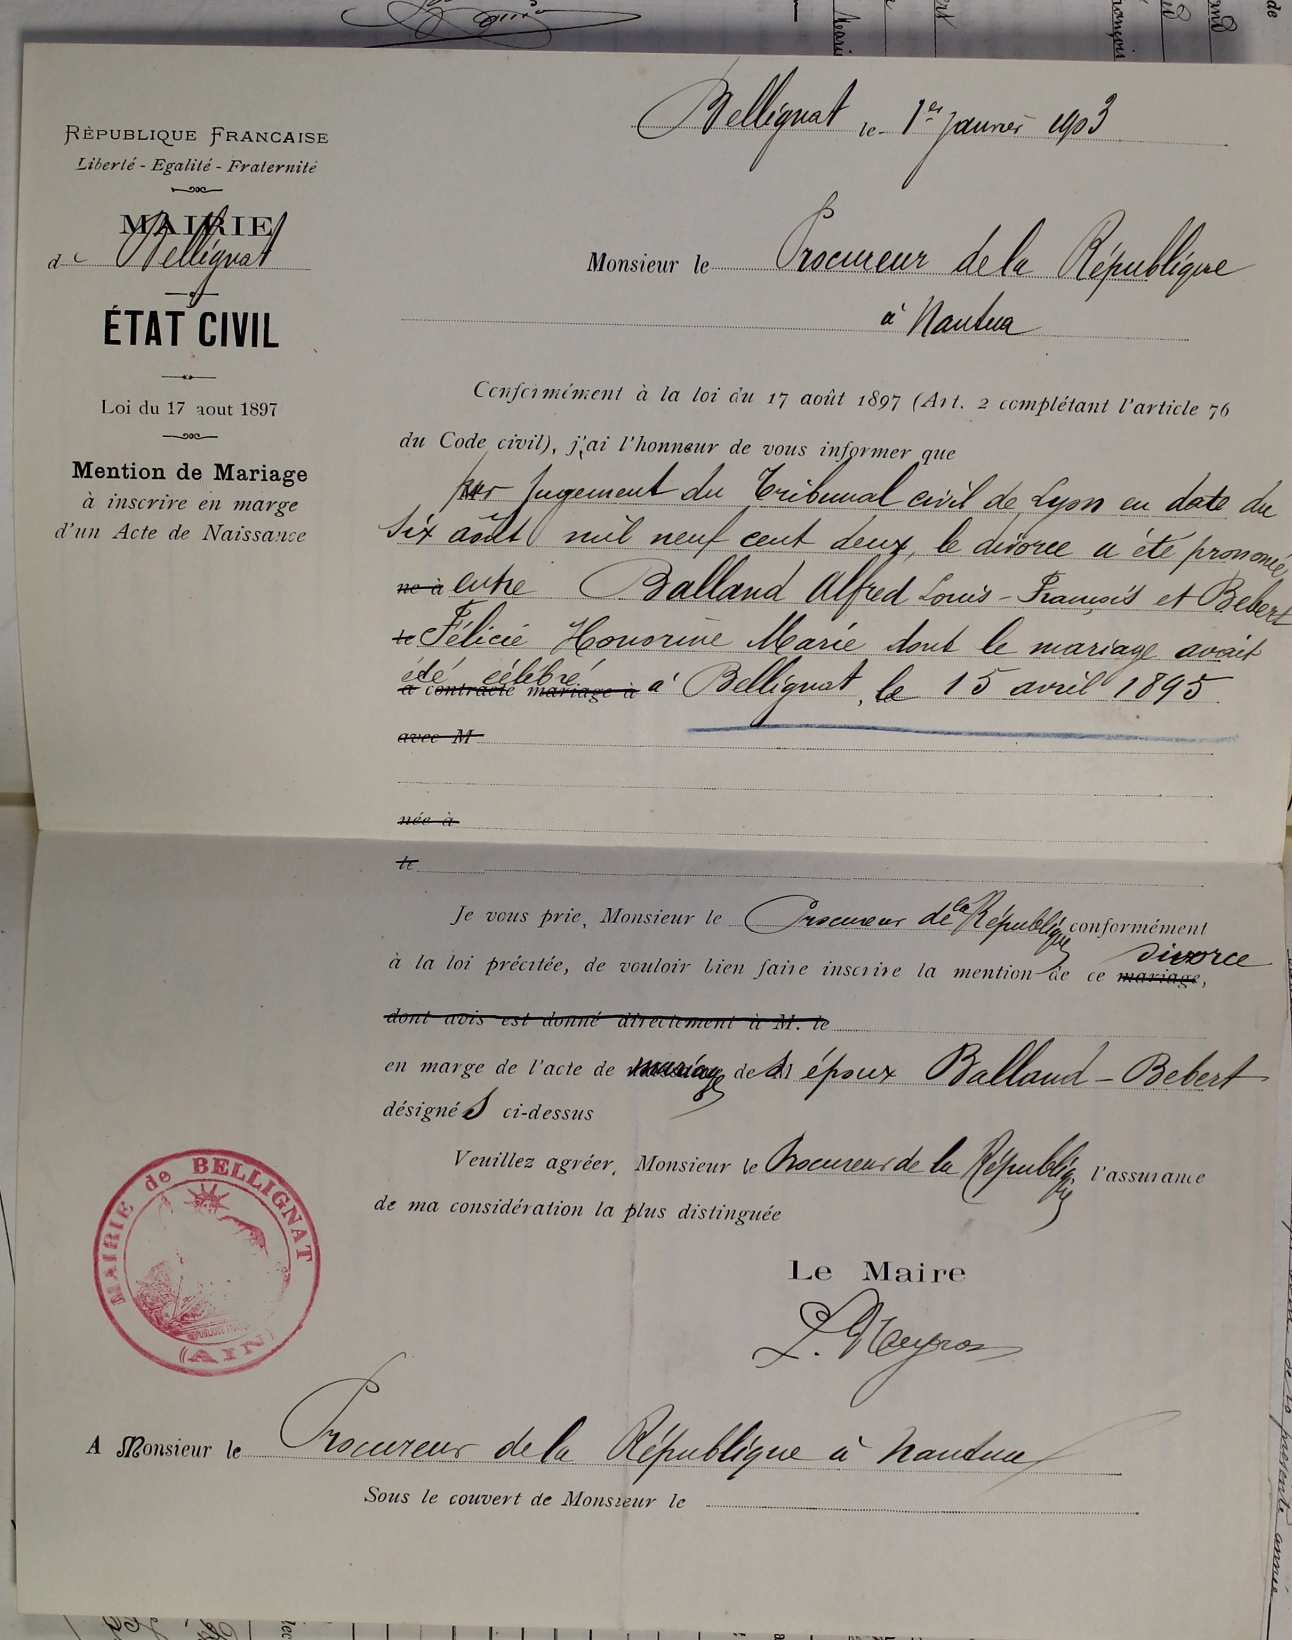 Bellignat le 1er Janvier 1903
RÉPUBLIQUE FRANÇAISE
Liberté - Egalité - Fraternité
MAIRIE
de Bellignat
ÉTAT CIVIL
Loi du 17 aout 1897
Mention de Mariage
à inscrire en marge
d'un Acte de Naissance
Monsieur le Procureur de la République
à Nantua
Conformément à la loi du 17 août 1897 (Art. 2 complétant l'article 76
du Code civil), j'ai l'honneur de vous informer que
par jugement du Tribunal civil de Lyon en date du
six août mil neuf cent deux, le divorce a été prononcé
né à entre Balland Alfred Louis-François et Bebert
le Félicie Honorine Marie dont le mariage avait
été célébré
a contracté mariage à à Bellignat, le 15 avril 1895
avec M
née à
le
Je vous prie, Monsieur le Procureur de la République conformément
à la loi précitée, de vouloir bien faire inscrire la mention de ce mariage, divorce
dont avis est donné directement à M. le
en marge de l'acte de mariage des époux Balland - Bebert
désignés ci-dessus
Veuillez agréer, Monsieur le Procureur de la République l'assurance
de ma considération la plus distinguée
Le Maire
MAIRIE de BELLIGNAT
RÉPUBLIQUE FRANÇAISE
(AIN)
A Monsieur le Procureur de la République à Nantua
Sous le couvert de Monsieur le
de la présente année